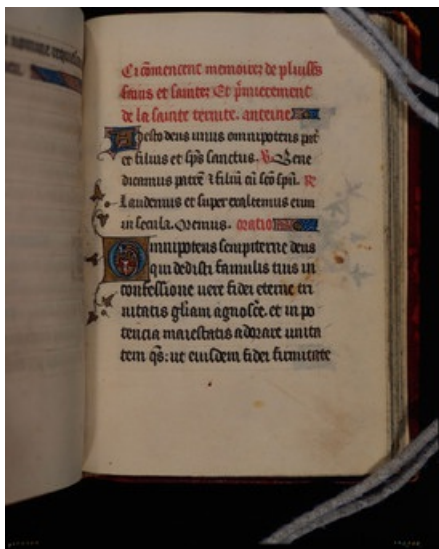 Ci cōmencent memoires de pluiss̄
sains et saintes Et p̄mierement
de la sainte ternite. anteine
Adesto deus unus omnipotens pat̄
et filius et sp̄s sanctus. V. Bene
dicamus patrē ⁊ filiū cū sc̄o sp̄u. R
Laudemus et super exaltemus eum
in secula. Oremus. oratio
Omnipotens sempiterne deus
qui dedisti famulis tuis in
confessione uere fidei eterne tri
nitatis gl̄iam agnosce᷒. et in po
tencia maiestatis adorare unita
tem q̄s: ut eiusdem fidei firmitate